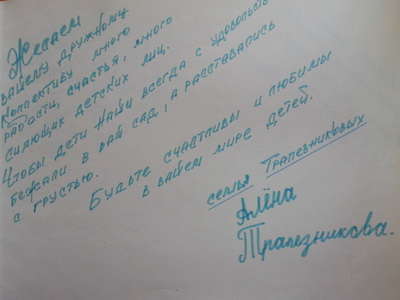 Желаем
вашему дружному
коллективу много
радости, счастья, много
сияющих детских лиц.
Чтобы дети наши всегда с удовольств
бежали в ваш сад, а расставались
с грустью.
Будьте счастливы и любимы
в вашем мире детей.
семья Трапезниковых
Алёна
Трапезникова.